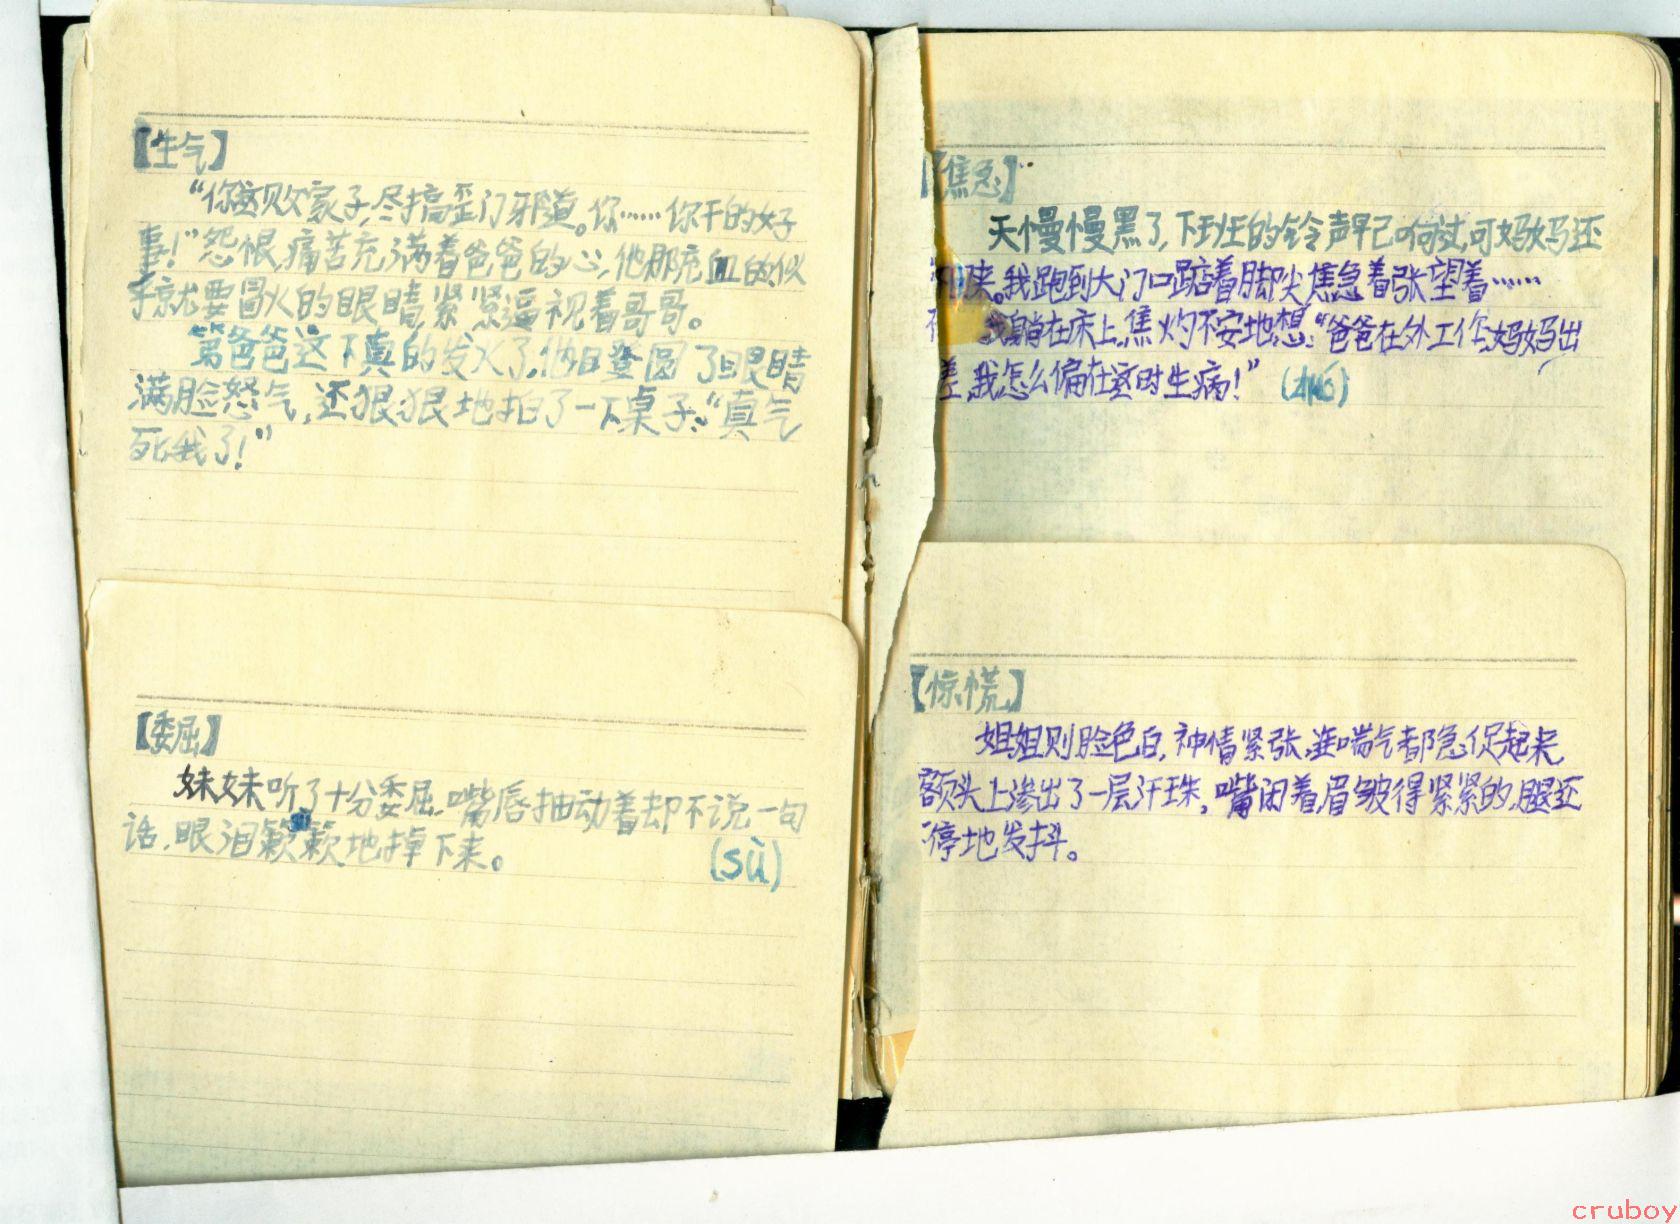 【生气】
“你这败家子,尽搞歪门邪道。你……你干的好
事!”怨恨,痛苦充满着爸爸的心,他那充血的,似
乎就要冒火的眼睛,紧紧逼视着哥哥。
爸爸这下真的发火了,他瞪圆了眼睛
满脸怒气,还狠狠地拍了一下桌子:“真气
死我了!”
【委屈】
妹妹听了十分委屈,嘴唇抽动着却不说一句
话,眼泪簌簌地掉下来。
(sù)
【焦急】
天慢慢黑了,下班的铃声早已响过,可妈妈还
来。我跑到大门口踮着脚尖焦急着张望着……
我躺在床上,焦灼不安地想:“爸爸在外工作,妈妈出
差,我怎么偏在这时生病!” (zhuó)
【惊慌】
姐姐则脸色白,神情紧张,连喘气都急促起来,
额头上渗出了一层汗珠,嘴闭着眉皱得紧紧的,腿还
停地发抖。
cruboy